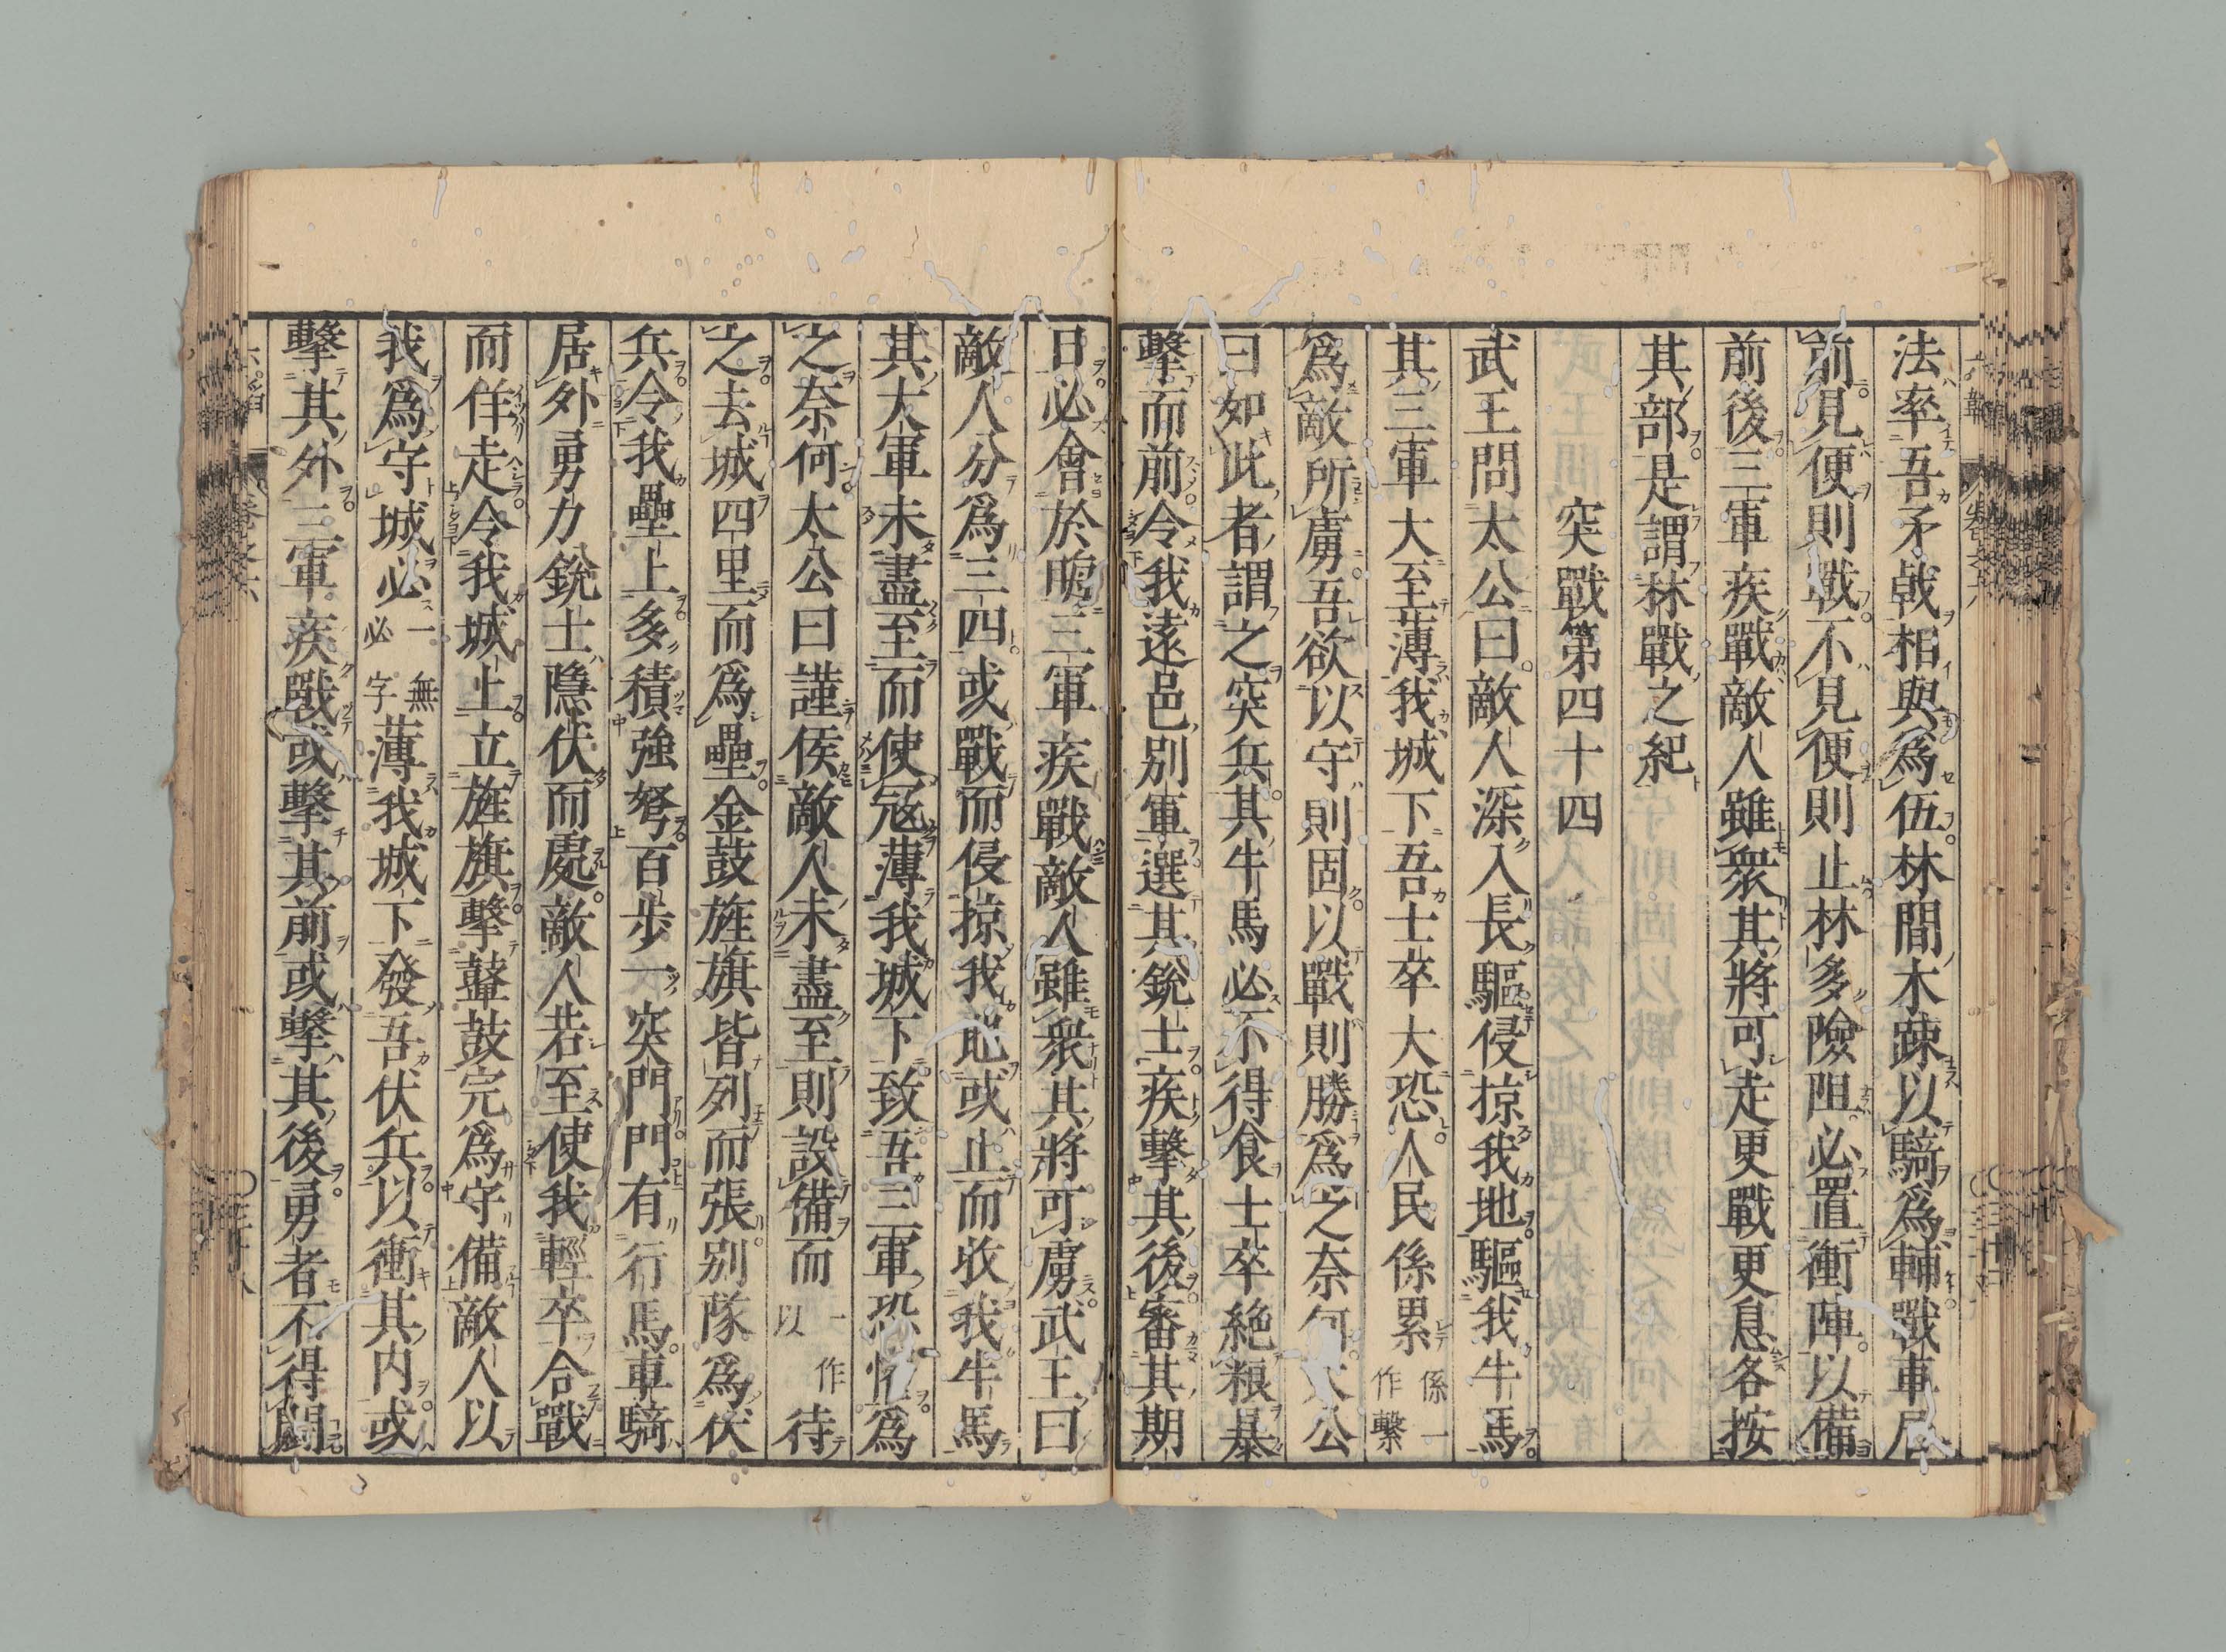 法率吾矛戟相與爲伍林間木疎以騎爲輔戰車居
前見便則戰不見便則止林多險阻必置衝陣以備
前後三軍疾戰敵人雖衆其將可走更戰更息各按
其部是謂林戰之紀
突戰第四十四
武王問太公曰敵人深入長驅侵掠我地驅我牛馬
其三軍大至薄我城下吾士卒大恐人民係累係一作繫
爲敵所虜吾欲以守則固以戰則勝爲之奈何太公
曰如此者謂之突兵其牛馬必不得食士卒絶粮暴
擊而前令我遠邑別軍選其銳士疾擊其後審其期
日必會於晦三軍疾戰敵人雖衆其將可虜武王曰
敵人分爲三四或戰而侵掠我地或止而收我牛馬
其大軍未盡至而使寇薄我城下致吾三軍恐懼爲
之奈何太公曰謹候敵人未盡至則設備而一作以待
之去城四里而爲壘金鼓旌旗皆列而張別隊爲伏
兵令我壘上多積強弩百步一突門門有行馬車騎
居外勇力銳士隱伏而處敵人若至使我輕卒合戰
而佯走令我城上立旌旗擊鼙鼓完爲守備敵人以
我爲守城必一無必字薄我城下發吾伏兵以衝其内或
擊其外三軍疾戰或擊其前或擊其後勇者不得鬪